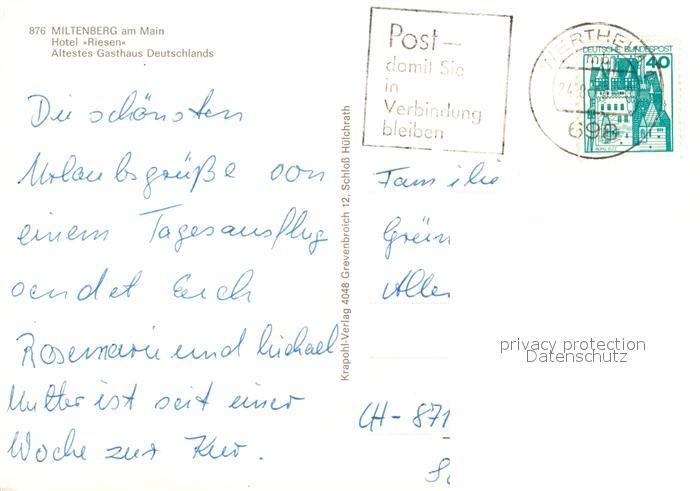 876 MILTENBERG am Main
Hotel »Riesen«
Ältestes Gasthaus Deutschlands
Post—
damit Sie
in
Verbindung
bleiben
WERTHEIM
698
DEUTSCHE BUNDESPOST
40
Die schönsten
Urlaubsgrüße von
einem Tagesausflug
sendet Euch
Rosemarie und Michael
Mutter ist seit einer
Woche zur Kur.
Krapohl-Verlag 4048 Grevenbroich 12, Schloß Hülchrath
Familie
Grün
Aller
CH - 871
privacy protection
Datenschutz